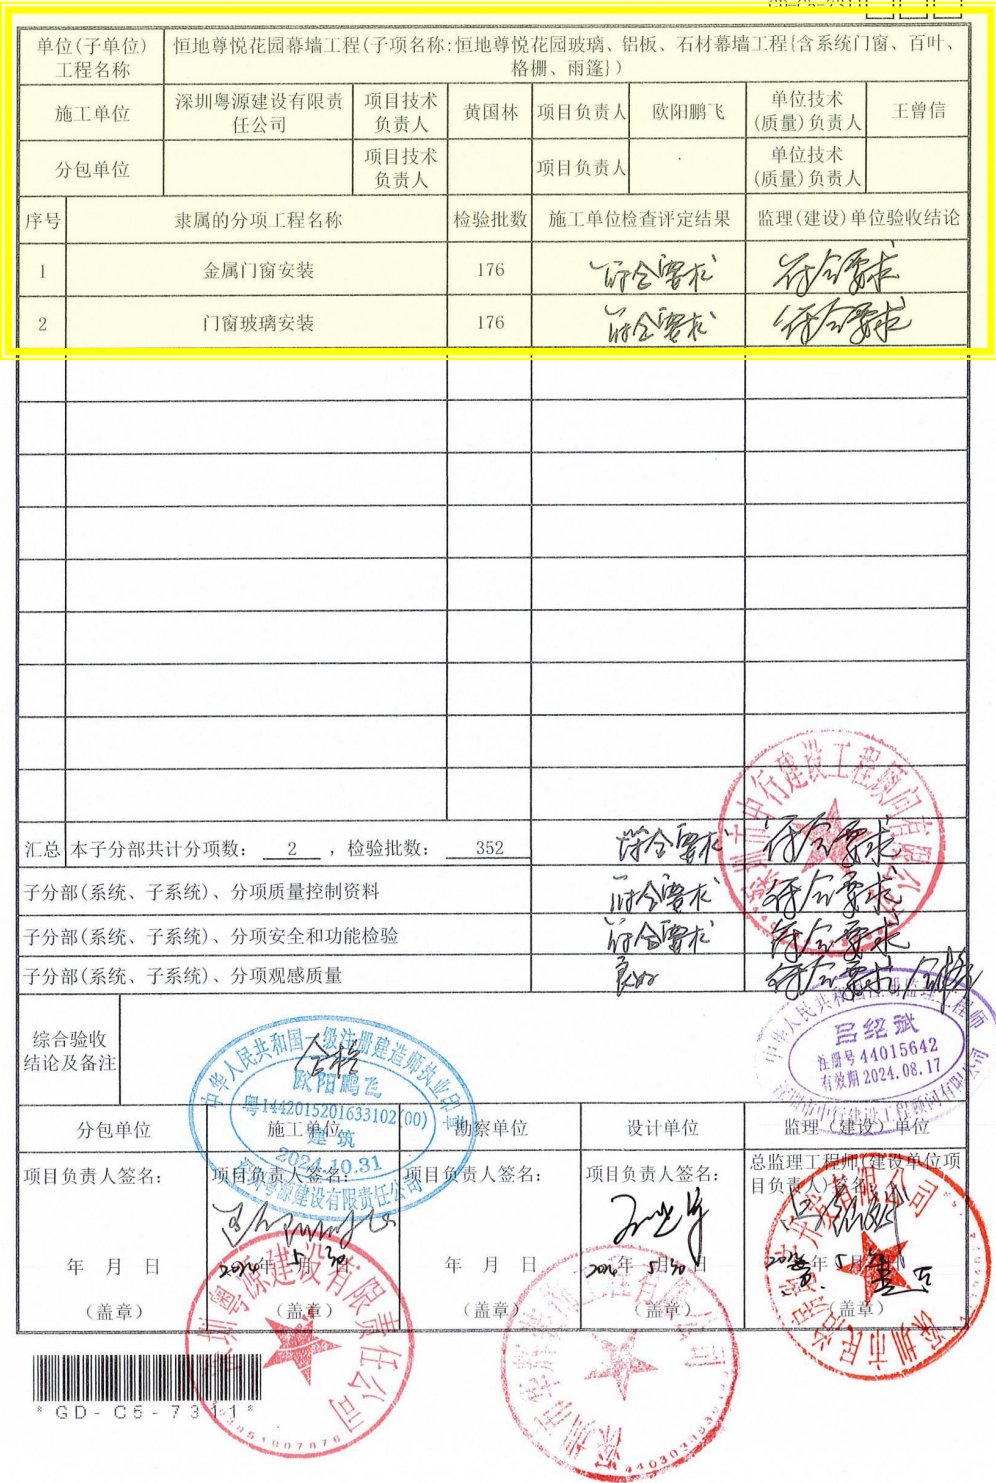 单位(子单位)
工程名称
恒地尊悦花园幕墙工程(子项名称:恒地尊悦花园玻璃、铝板、石材幕墙工程{含系统门窗、百叶、
格栅、雨篷})
施工单位
深圳粤源建设有限责
任公司
项目技术
负责人
黄国林
项目负责人
欧阳鹏飞
单位技术
(质量)负责人
王曾信
分包单位
项目技术
负责人
项目负责人
单位技术
(质量)负责人
序号 隶属的分项工程名称 检验批数 施工单位检查评定结果 监理(建设)单位验收结论
1 金属门窗安装 176 符合要求 符合要求
2 门窗玻璃安装 176 符合要求 符合要求
汇总 本子分部共计分项数: 2 ,检验批数: 352 符合要求 符合要求
子分部(系统、子系统)、分项质量控制资料 符合要求 符合要求
子分部(系统、子系统)、分项安全和功能检验 符合要求 符合要求
子分部(系统、子系统)、分项观感质量 良好 符合要求,合格
综合验收
结论及备注
合格
中华人民共和国一级注册建造师执业印章
欧阳鹏飞
粤1442015201633102(00)
建筑
2024.10.31
深圳粤源建设有限责任公司
中华人民共和国注册监理工程师
吕绍斌
注册号 44015642
有效期 2024.08.17
深圳市中行建设工程顾问有限公司
深圳市中行建设工程顾问有限公司
分包单位 施工单位 勘察单位 设计单位 监理(建设)单位
项目负责人签名: 项目负责人签名: 项目负责人签名: 项目负责人签名: 总监理工程师(建设单位项
目负责人)签名:
年 月 日 2024年 5月30日 年 月 日 2024年 5月30日
年 5月
(盖章) (盖章) (盖章) (盖章) (盖章)
深圳粤源建设有限责任公司
*GD-C5-7311*